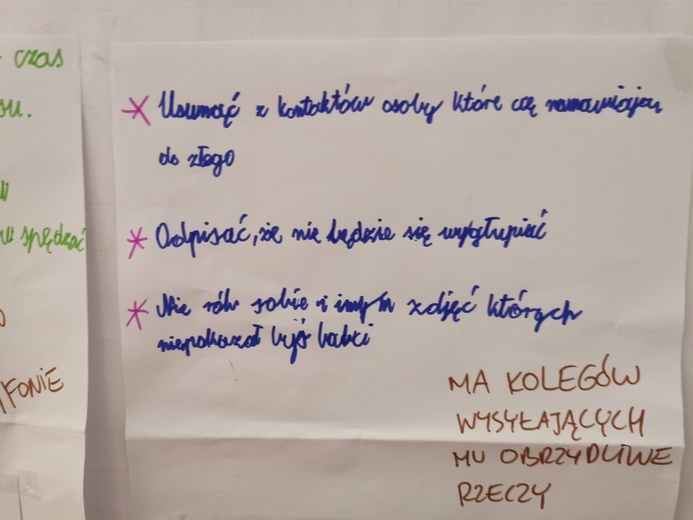 czas
su.
spędzać
FONIE
* Usunąć z kontaktów osoby które cię namawiają
do złego
* Odpisać, że nie będzie się wygłupiać
* Nie rób sobie i innym zdjęć których
niepokazał byś babci
MA KOLEGÓW
WYSYŁAJĄCYCH
MU OBRZYDLIWE
RZECZY